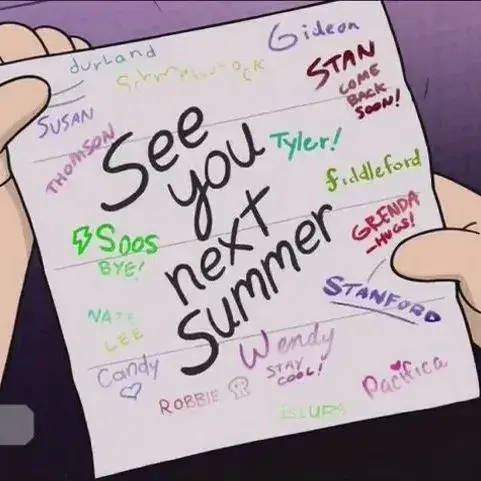 durland
Gideon
STAN
COME
BACK
SOON!
SUSAN
THOMSON
See
you
next
summer
Tyler!
fiddleford
Soos
BYE!
GRENDA
-HUGS!
STANFORD
NATE
LEE
Candy
Wendy
STAY
COOL!
ROBBIE
Pacifica
BLUBS